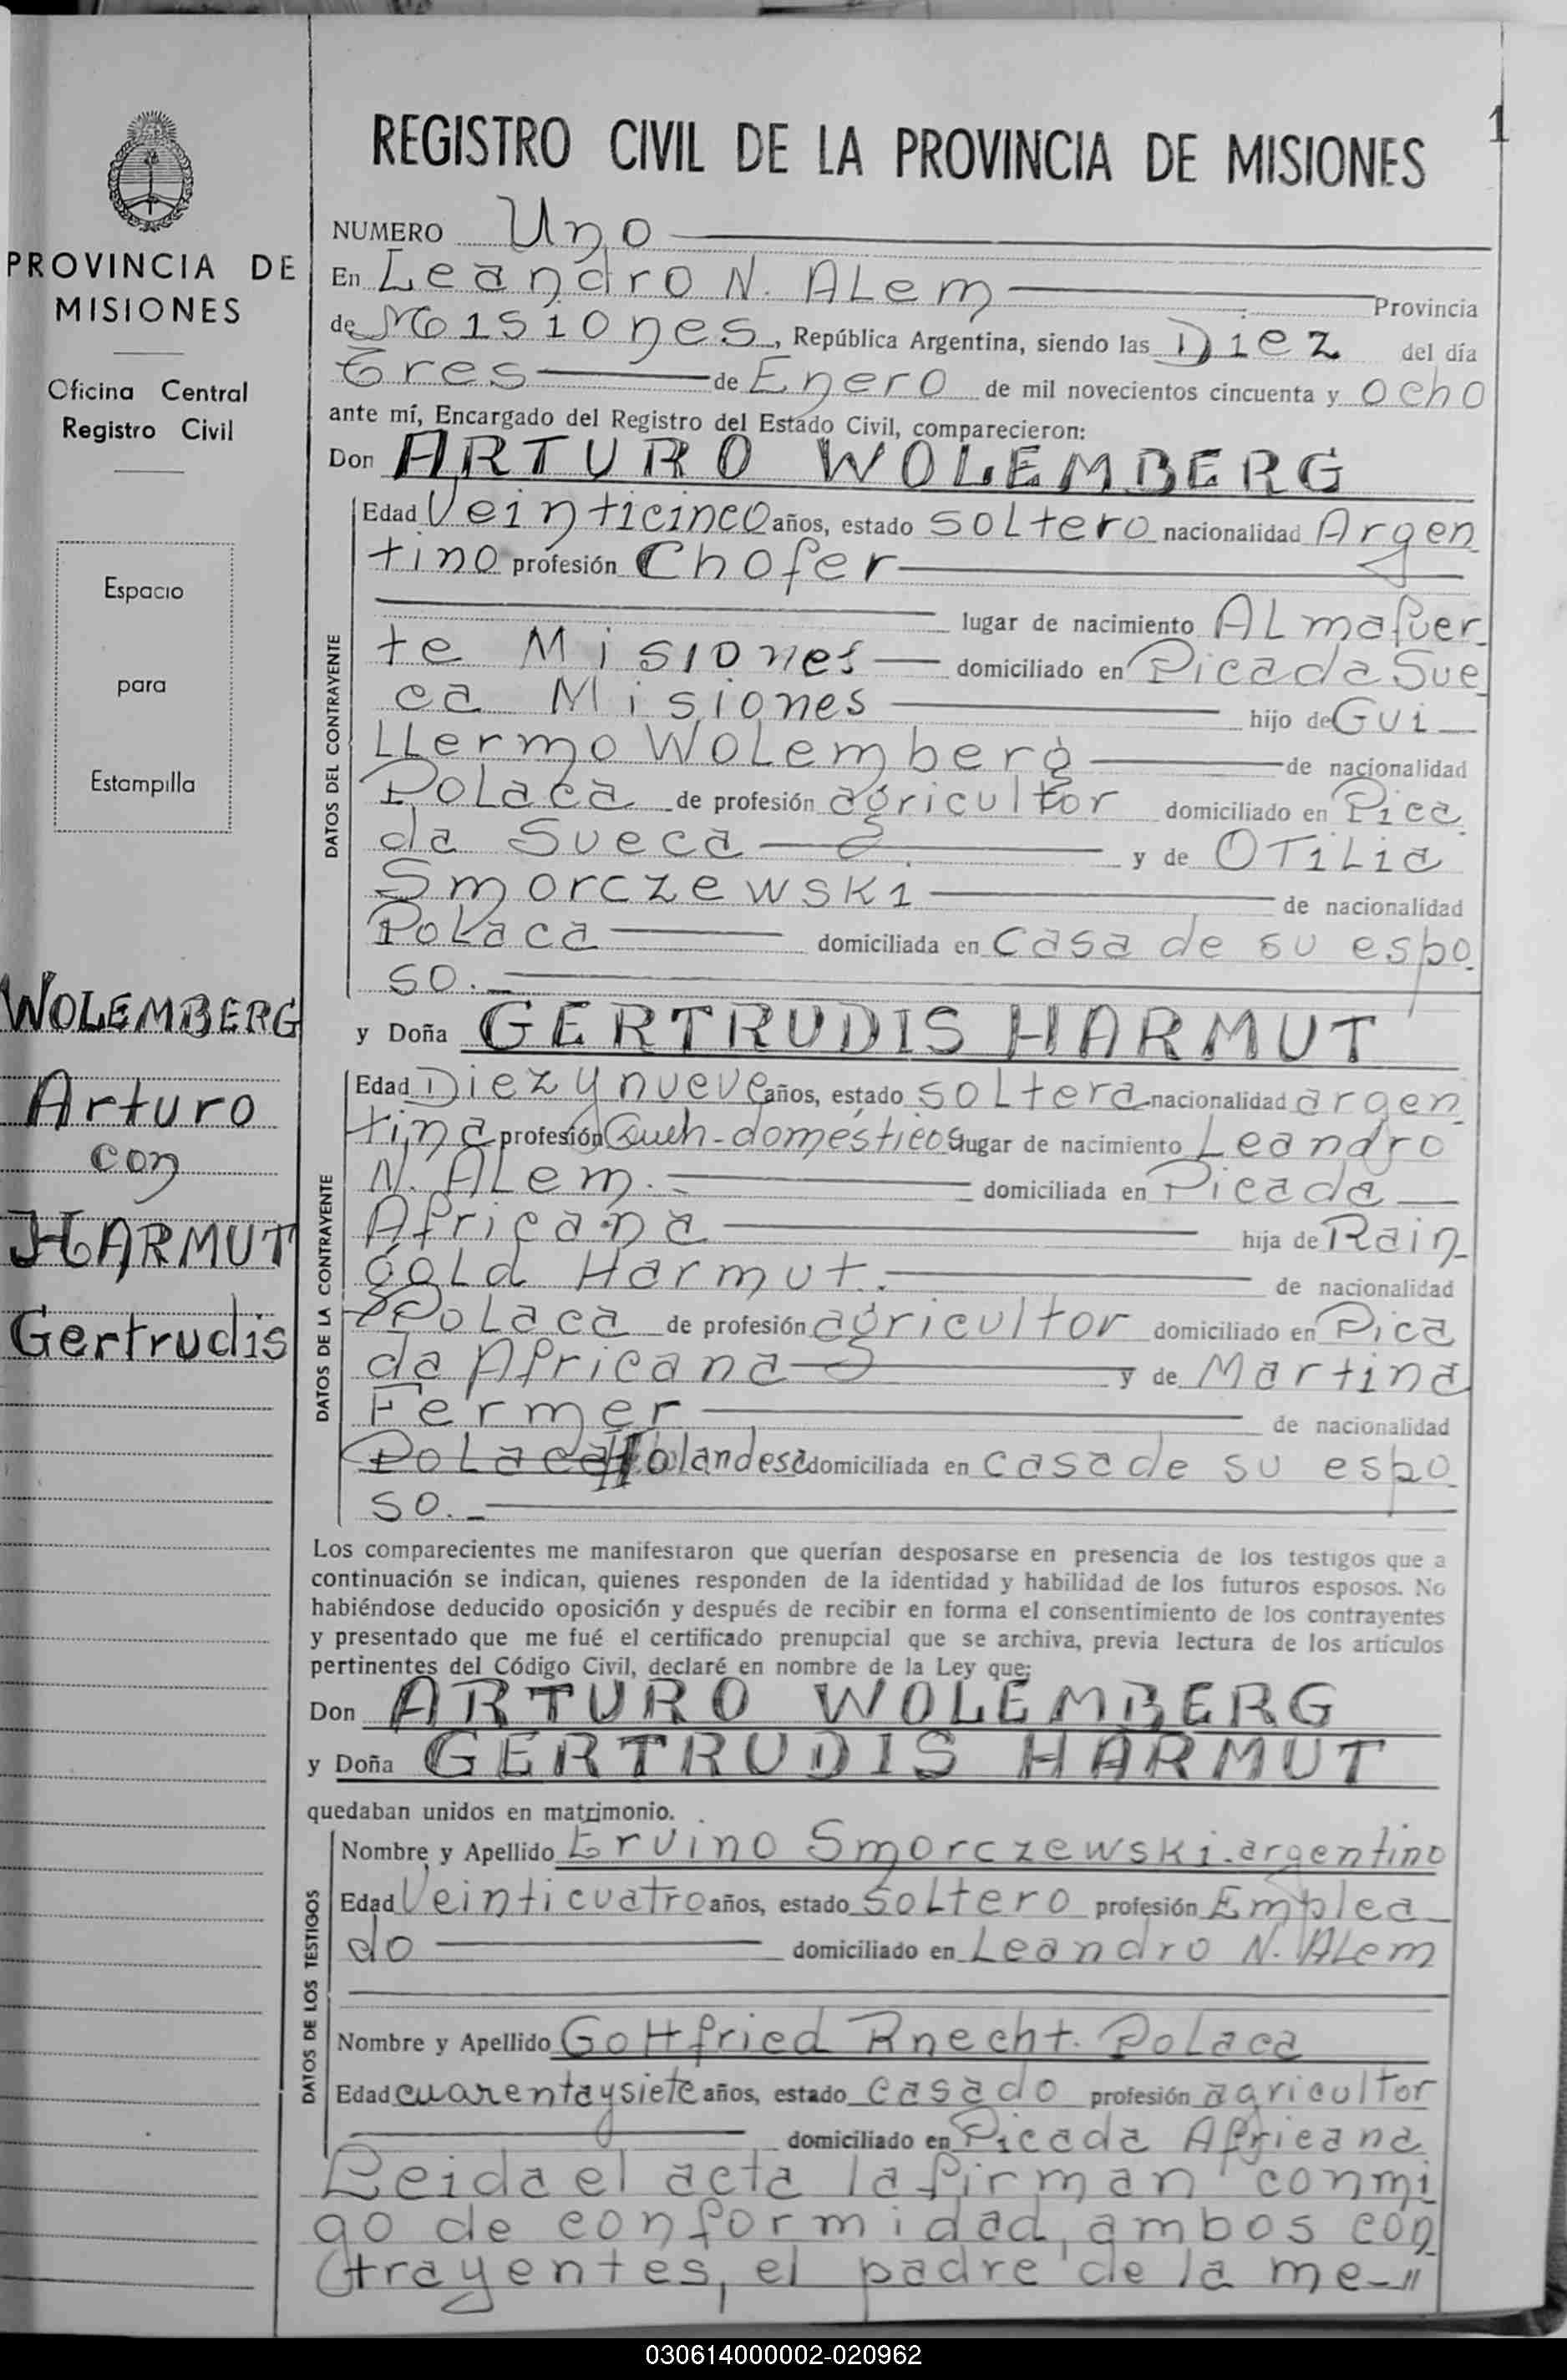 1
REGISTRO CIVIL DE LA PROVINCIA DE MISIONES
PROVINCIA DE
MISIONES
Oficina Central
Registro Civil
Espacio
para
Estampilla
WOLEMBERG
Arturo
con
HARMUT
Gertrudis
NUMERO Uno
En Leandro N. ALem Provincia
de Misiones, República Argentina, siendo las Diez del día
Tres de Enero de mil novecientos cincuenta y ocho
ante mí, Encargado del Registro del Estado Civil, comparecieron:
Don ARTURO WOLEMBERG
DATOS DEL CONTRAYENTE
Edad Veinticinco años, estado soltero nacionalidad Argen
tino profesión Chofer
lugar de nacimiento ALmafuer
te Misiones domiciliado en Picada Sue
ca Misiones hijo de Gui
LLermo Wolemberg de nacionalidad
Polaca de profesión agricultor domiciliado en Pica
da Sueca y de OTiLia
Smorczewski de nacionalidad
Polaca domiciliada en casa de su espo
so.-
y Doña GERTRUDIS HARMUT
DATOS DE LA CONTRAYENTE
Edad Diez y nueve años, estado soltera nacionalidad argen
tina profesión Queh-domésticos lugar de nacimiento Leandro
N. ALem.- domiciliada en Picada
Africana hija de Rain
gold Harmut. de nacionalidad
Polaca de profesión agricultor domiciliado en Pica
da Africana y de Martina
Fermer de nacionalidad
Polaca Holandesa domiciliada en casa de su espo
so.-
Los comparecientes me manifestaron que querían desposarse en presencia de los testigos que a
continuación se indican, quienes responden de la identidad y habilidad de los futuros esposos. No
habiéndose deducido oposición y después de recibir en forma el consentimiento de los contrayentes
y presentado que me fué el certificado prenupcial que se archiva, previa lectura de los artículos
pertinentes del Código Civil, declaré en nombre de la Ley que:
Don ARTURO WOLEMBERG
y Doña GERTRUDIS HARMUT
quedaban unidos en matrimonio.
DATOS DE LOS TESTIGOS
Nombre y Apellido Ervino Smorczewski-argentino
Edad Veinticuatro años, estado soltero profesión Emplea
do domiciliado en Leandro N. ALem
Nombre y Apellido Gottfried Knecht. Polaca
Edad cuarenta y siete años, estado casado profesión agricultor
domiciliado en Picada Africana
Leida el acta la firman conmi
go de conformidad, ambos con
trayentes, el padre de la me-"
030614000002-020962